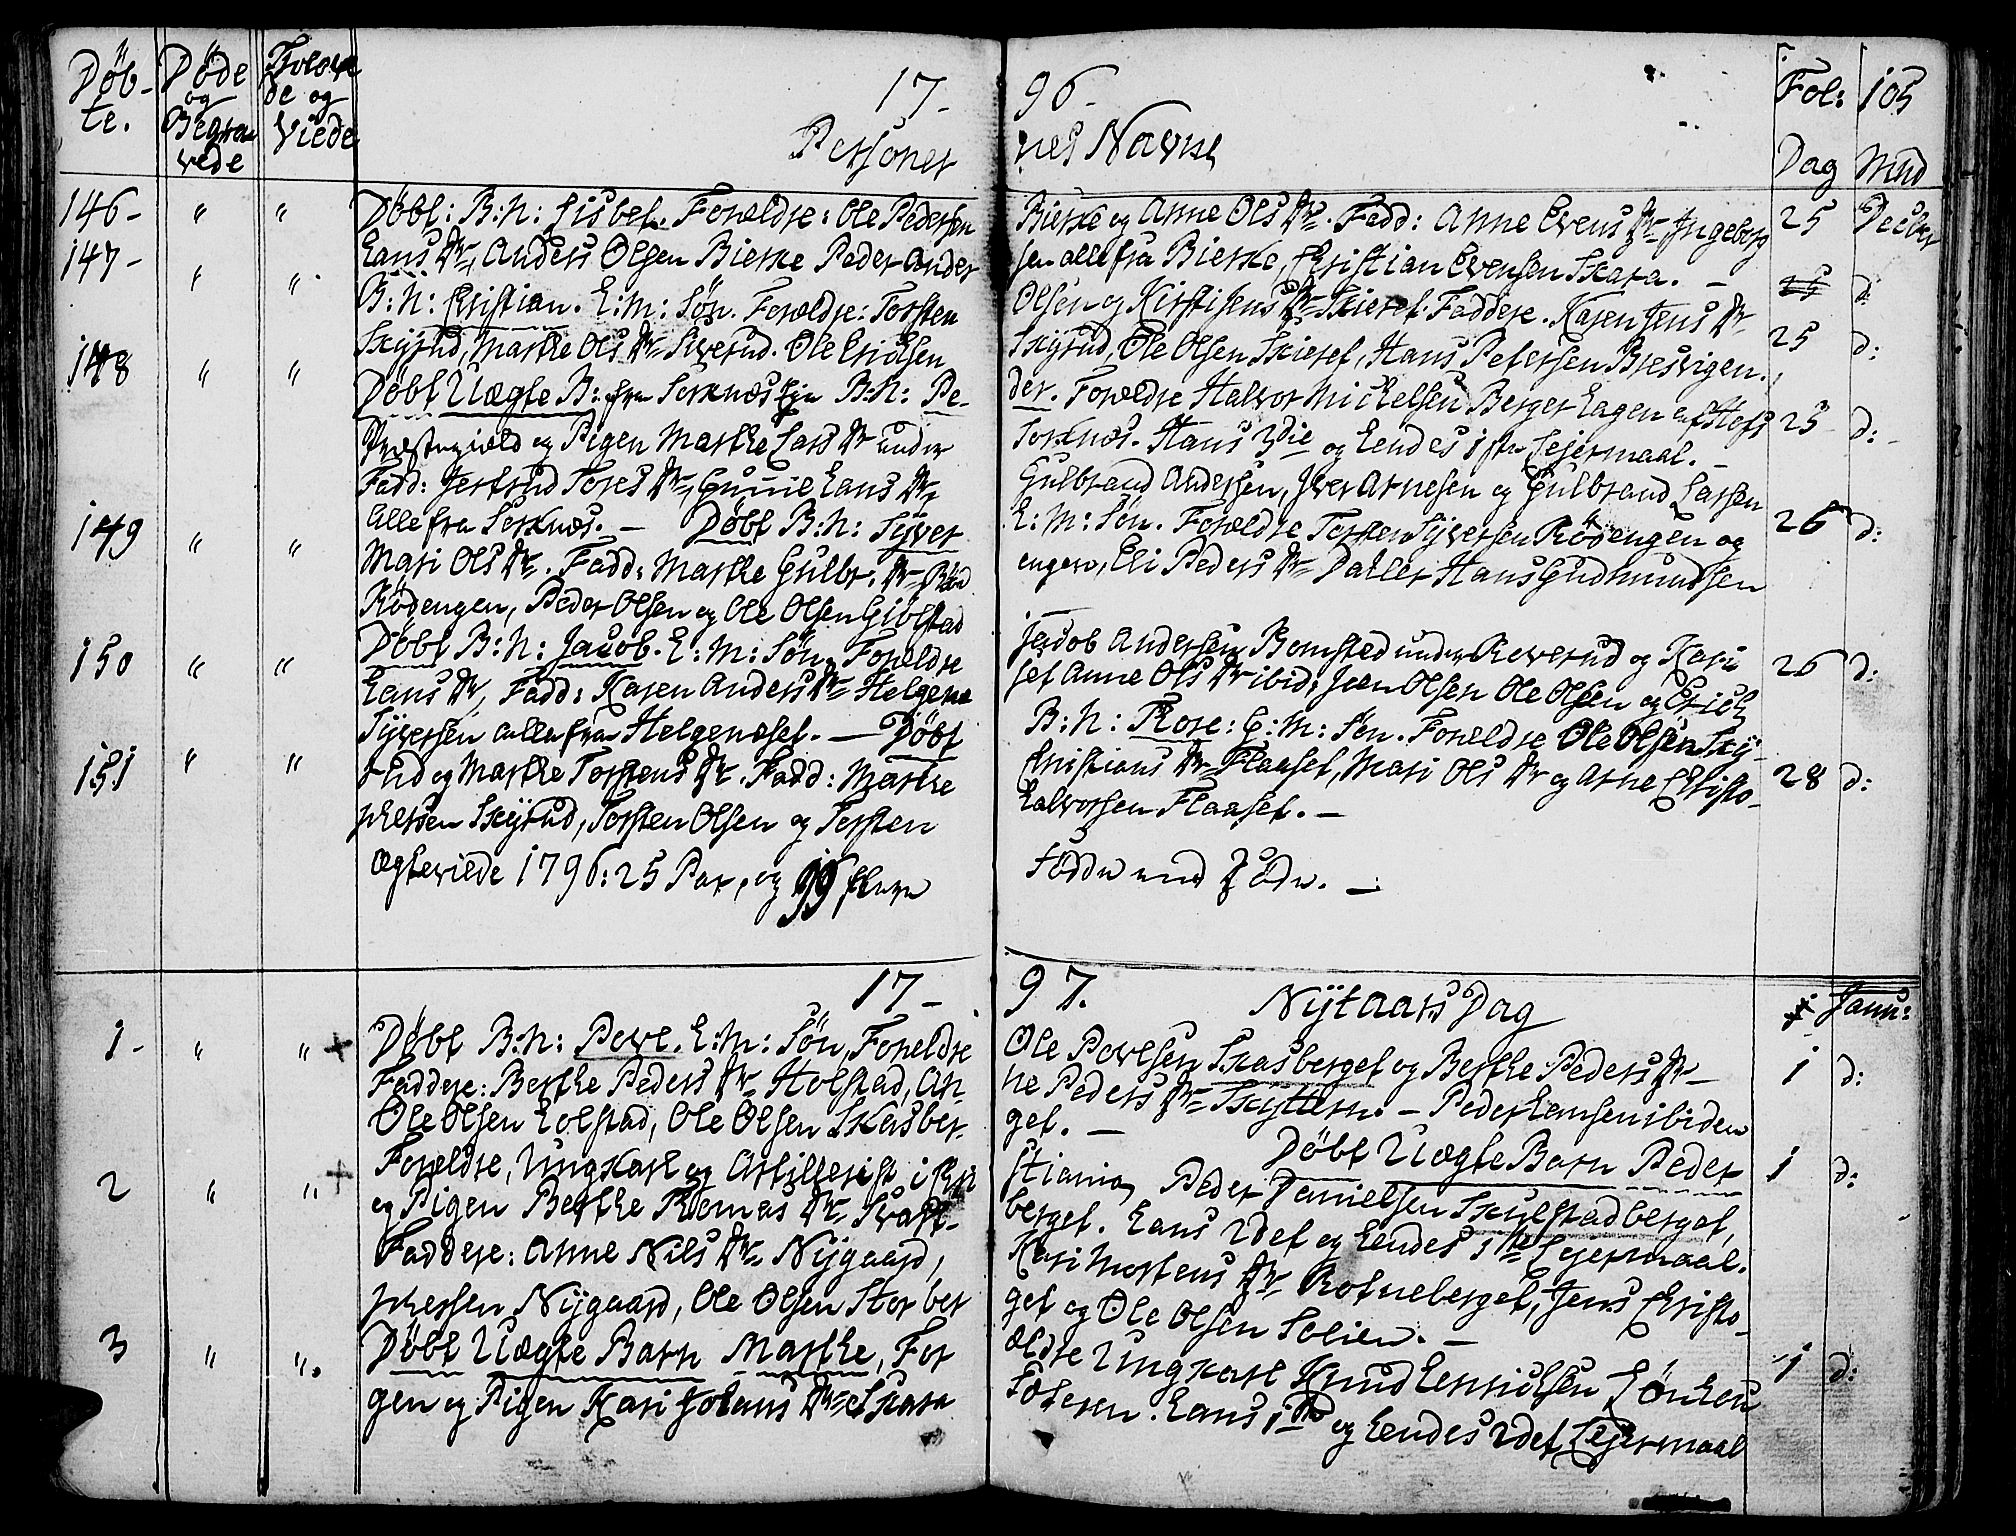 Döb- Döde Trolov
te. og de og
Begra Viede
vede
17- 96- Fol: 105
Personer nes Navne Dag Mnd
146- " " Döbt: B:N: Lisbet. Forældre: Ole Pedersen Bierke og Anne Ols Dr. Fadd: Anne Evens Dr Ingeborg 25 Decbr
147- " " Hans Dr, Anders Olsen Bierke Peder Ander sen alle fra Bierke, Christian Evensen Skara. - 25 d:
B:N: Christian. E:M: Søn. Forældre: Torsten Olsen og Kirsti Jens Dr Skieret. Faddere. Karen Jens Dr
Skyrud, Marthe Ols Dr Siverud. Ole Erichsen Skyrud, Ole Olsen Skieret, Hans Petersen Bresvigen. 25 d:
148 " " Döbt Uægte B: fra Sorknæs Eje B:N: Pe- der. Forældre Halvor Michelsen Berger Hagen af Hofs 25 d:
Præstegield og Pigen Marthe Lars Dr under Sorknæs. Hans 3die og hendes 1ste Lejermaal. -
Fadd: Jertrud Tores Dr, Gunnie Hans Dr, Gulbrand Andersen, Iver Arnesen og Gulbrand Larsen
149 " " Alle fra Sorknæs. - Döbt B:N: Syver E:M: Søn. Forældre Torsten Syversen Rödengen og 26 d:
Mari Ols Dr. Fadd: Marthe Gulbr. Dr Röd engen, Eli Peders Dr Daller Hans Gudmundsen
Rödengen, Peder Olsen og Ole Olsen Giölstad
150 " " Döbt B:N: Jacob. E:M: Søn. Forældre Jacob Andersen Bomsted under Reverud og Kari 26 d:
Hans Dr, Fadd: Karen Anders Dr Helgenæ set Anne Ols Dr ibid: Joen Olsen Ole Olsen og Erich
Syversen alle fra Helgenæset. - Döbt B:N: Thore: E:M: Søn. Forældre Ole Olsen Sky-
151 " " rud og Marthe Torstens Dr. Fadd: Marthe Christians Dr Flaaset, Mari Ols Dr og Arne Christo- 28 d:
phersen Skyrud, Torsten Olsen og Torsten Halvorsen Flaaset. -
Ægteviede 1796: 25 Par, og 99 flere Födde end Döde. -
17- 97.
Nytaars Dag 1 Janu:
1- " " + Döbt B:N: Povl. E:M: Søn, Forældre Ole Povlsen Skasberget og Berthe Peders Dr - 1 d:
Faddere: Berthe Peders Dr Holstad, An- ne Peders Dr Skytteren. - Peder Hansen ibiden
Ole Olsen Holstad, Ole Olsen Skasber- get. -
Döbt Uægte Barn Peder 1 d:
2 " " + Forældre, Ungkarl og Artillerist i Chri stiania Peder Danielsen Skulstadberget,
og Pigen Berthe Thomas Dr Svart- berget. Hans 2det og hendes 1ste Lejermaal.
Faddere: Anne Nils Dr Nygaard, Kari Mortens Dr Rotneberget, Jens Christo-
phersen Nygaard, Ole Olsen Storber get og Ole Olsen Solien. -
3 " " Döbt Uægte Barn Marthe, For ældre Ungkarl Knud Henrichsen Lönhou 1 d:
gen og Pigen Kari Johans Dr Skara Soteren. Hans 1ste og hendes 2det Lejermaal